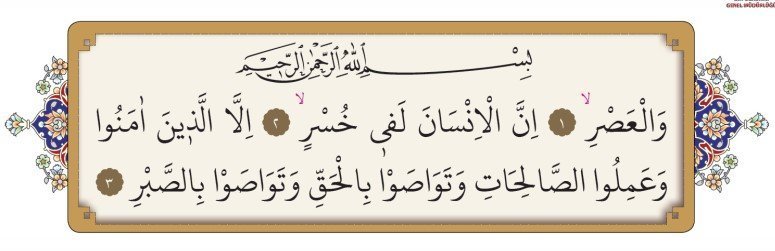 GENEL MÜDÜRLÜĞÜ
بِسْمِ اللّٰهِ الرَّحْمٰنِ الرَّحٖيمِ
وَالْعَصْرِۙ ﴿١﴾ اِنَّ الْاِنْسَانَ لَفٖي خُسْرٍۙ ﴿٢﴾ اِلَّا الَّذٖينَ اٰمَنُوا
وَعَمِلُوا الصَّالِحَاتِ وَتَوَاصَوْا بِالْحَقِّ وَتَوَاصَوْا بِالصَّبْرِ ﴿٣﴾